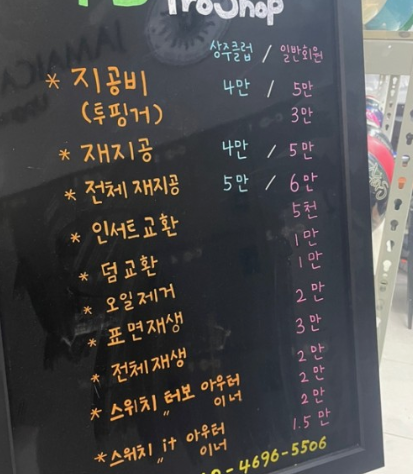 ProShop
상주클럽 / 일반회원
* 지공비 4만 / 5만
(투핑거) 3만
* 재지공 4만 / 5만
* 전체 재지공 5만 / 6만
5천
* 인서트교환 1만
1만
* 덤교환
* 오일제거 2만
* 표면재생 3만
* 전체재생 2만
* 스위치 터보 아우터 2만
〃 이너 2만
* 스위치 it 아우터 1.5만
〃 이너
-4696-5506